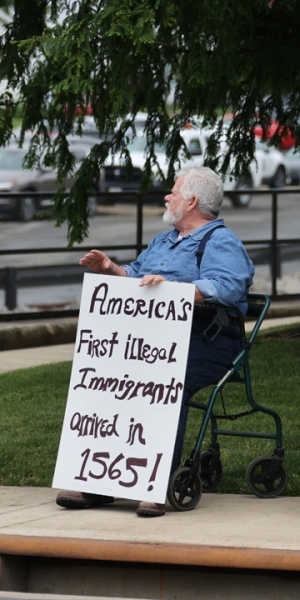 America's
First illegal
Immigrants
arrived in
1565!